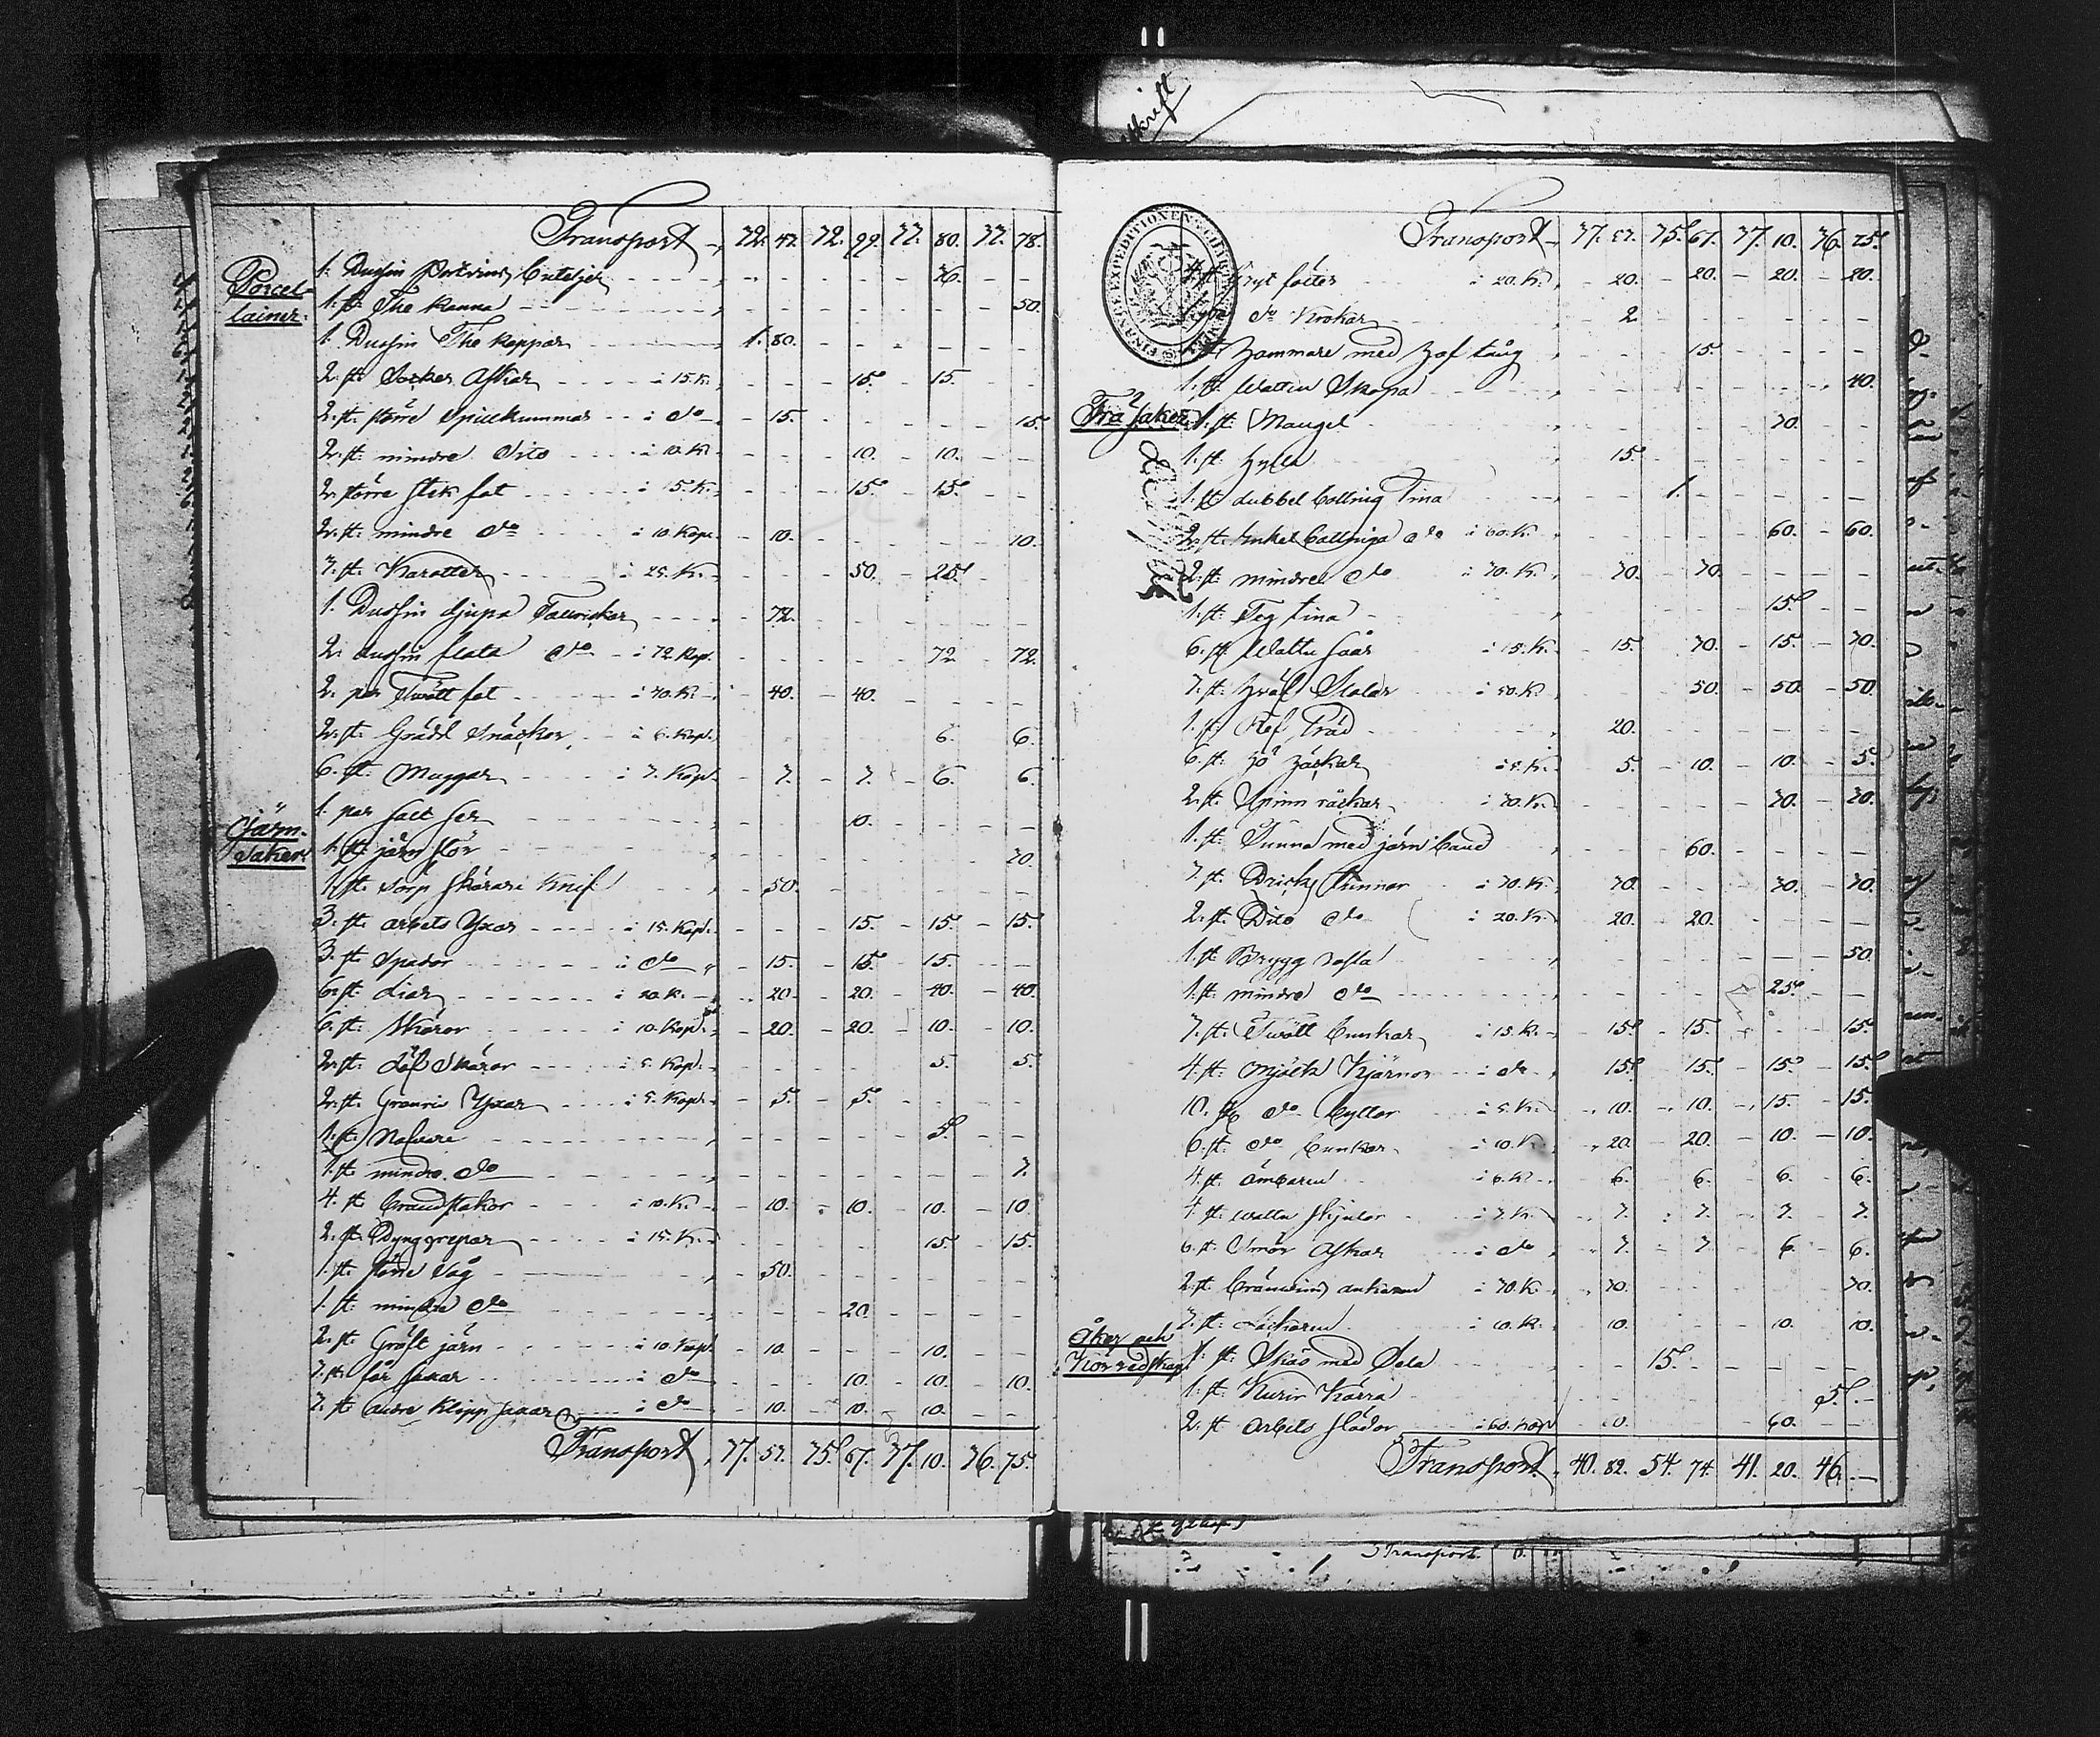 Transport 72. 47. 72. 99. 77. 80. 72. 78.
Porcel-
lainer.
1. Dussin Portvins buteljer 36.
1. st. The kanna 50.
1. Dussin The koppar 1. 80.
2. st. Socker Askar à 15. K. 15. 15.
2. st. större Spillkummar à do 15. 15.
2. st. mindre Dito à 10. K. 10. 10.
2. större stek fat à 15. K. 15. 15.
2. st. mindre do à 10. Kop. 10. 10.
3. st. Karotter à 25. K. 50. 25.
1. Dussin djupa Tallrickar 72.
2. dussin flata do à 72. Kop. 72. 72.
2. par Tvätt fat à 40. K. 40. 40.
2. st. Grädd Snäckor à 6. Kop. 6. 6.
6. st. Muggar à 3. Kop. 3. 3. 6. 6.
1. par salt kar 10.
Järn-
Saker.
1. st. järn stör 30.
1. st. Sörp skärare Knif 50.
3. st. arbets Yxor à 15. Kop. 15. 15. 15.
3. st. Spador à do 15. 15. 15.
6. st. Liar à 20. K. 20. 20. 40. 40.
6. st. Skäror à 10. Kop. 20. 20. 10. 10.
2. st. Löf Skäror à 5. Kop. 5. 5.
2. st. Granris Yxor à 5. Kop. 5. 5.
1. st. Nafvare 5.
1. st. mindre do 3.
4. st. brandstakar à 10. K. 10. 10. 10. 10.
2. st. Dynggrepar à 15. K. 15. 15.
1. st. större Såg 50.
1. st. mindre do 20.
2. st. Gräft järn à 10. Kop. 10. 10.
3. st. får saxar à do 10. 10. 10.
3. st. andre Klipp saxar à do 10. 10. 10.
Transport 77. 57. 75. 67. 77. 10. 76. 75.
FINANCE EXPEDITIONENS
Transport 77. 57. 75. 67. 77. 10. 76. 75.
4. st. Gryt fötter à 20. K. 20. 20. 20. 20.
do Krokar 2.
Hammare med Hof tång 15.
1. st. Watten Skopa 40.
Trä saker.
1. st. Mangel 30.
1. st. Hylla 15.
1. st. dubbel bottnig Tina 1.
2. st. Enkel bottniga do à 60. K. 60. 60.
2. st. mindre do à 30. K. 30. 30.
1. st. Deg tina 15.
6. st. Watten såar à 15. K. 15. 30. 15. 30.
3. st. Stolar à 50. K. 50. 50. 50.
1. st. 20.
6. st. Hö Häckar à 5. K. 5. 10. 10. 5.
2. st. Spinn råckar à 30. K. 30. 30.
1. st. Tunna med järn band 60.
3. st. Dricks tunnor à 30. K. 30. 30. 30.
2. st. Dito do à 20. K. 20. 20.
1. st. Brygg 50.
1. st. mindre do 25.
3. st. Tvätt bunkar à 15. K. 15. 15. 15.
4. st. Mjölk Kjärnor à do 15. 15. 15. 15.
10. st. do byttor à 5. K. 10. 10. 15. 15.
6. st. do bunkar à 10. K. 20. 20. 10. 10.
4. st. ämbaren à 6. K. 6. 6. 6. 6.
4. st. watten skjulor à 3. K. 3. 3. 3. 3.
6. st. Smör Askar à do 3. 3. 6. 6.
2. st. bränvins ankaren à 30. K. 30. 30.
3. st. Läckaren à 10. K. 10. 10. 10.
Åker och
Körredskap.
1. st. Skäs med Sela 15.
1. st. Kurir Kärra 5.
2. st. arbets slädor à 60. kop. 60. 60.
Transport 40. 82. 54. 74. 41. 20. 46.
Transport